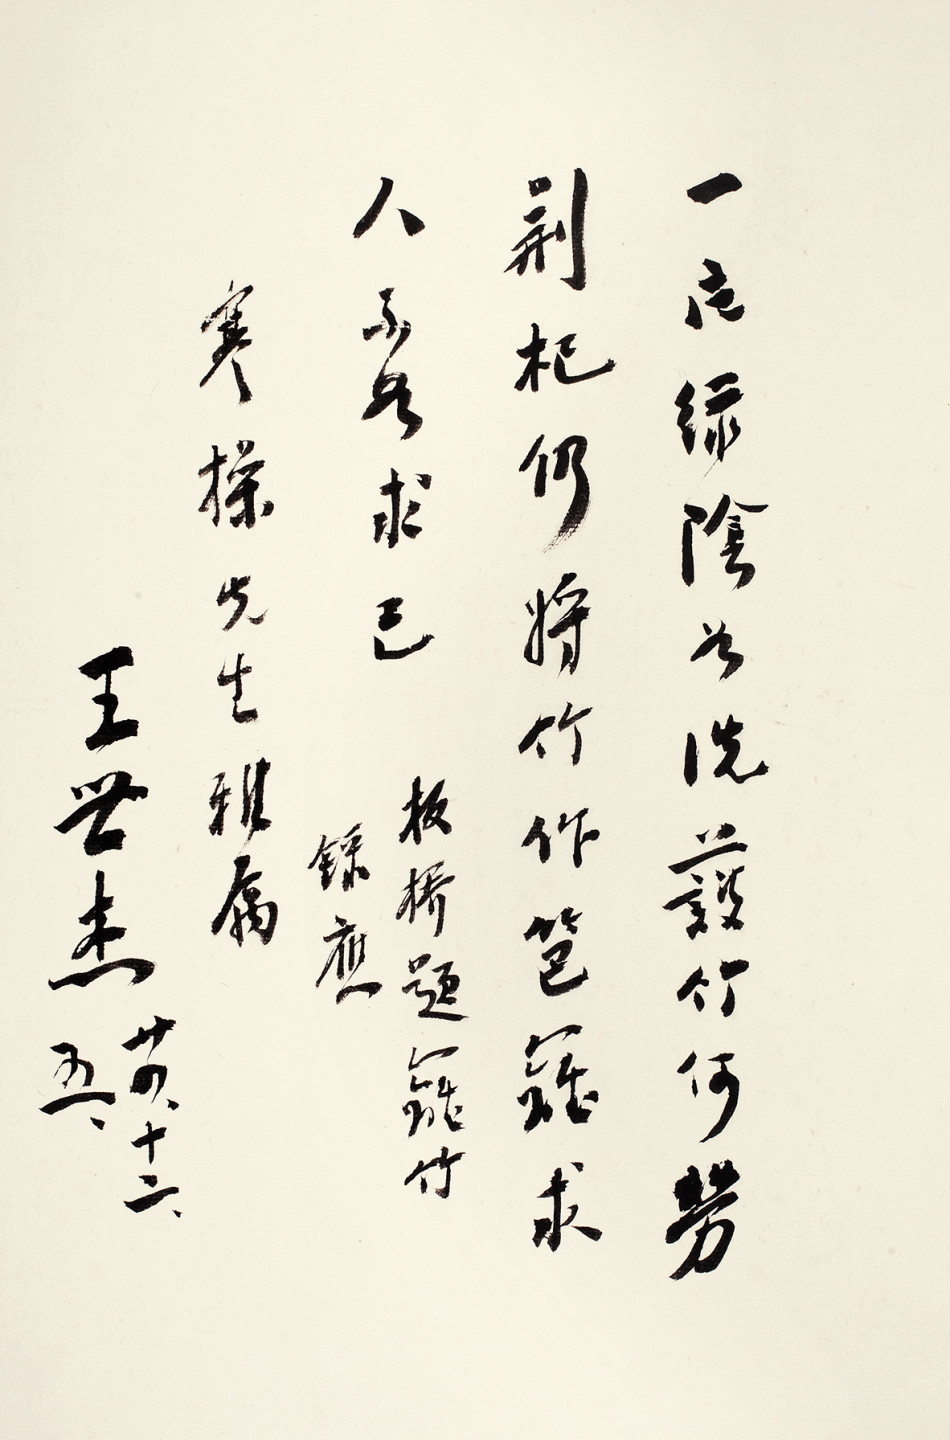 一片綠陰如洗護竹何勞
荆杞仍將竹作笆籬求
人不如求己
板橋題籬竹
錄應
寒操先生雅屬
王世杰
廿四、十二、
五、